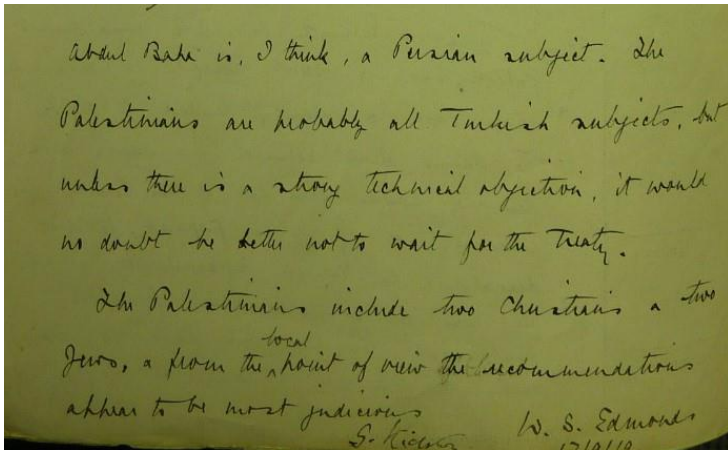 Abdul Baha is, I think, a Persian subject. The
Palestinians are probably all Turkish subjects, but
unless there is a strong technical objection, it would
no doubt be better not to wait for the Treaty.
The Palestinians include two Christians & two
Jews, & from the local point of view the recommendations
appear to be most judicious
W. S. Edmonds